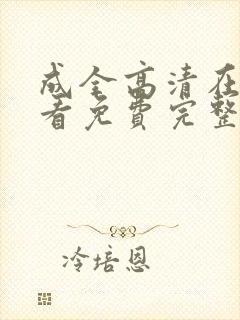 成全高清在
看免费完整
冷培恩